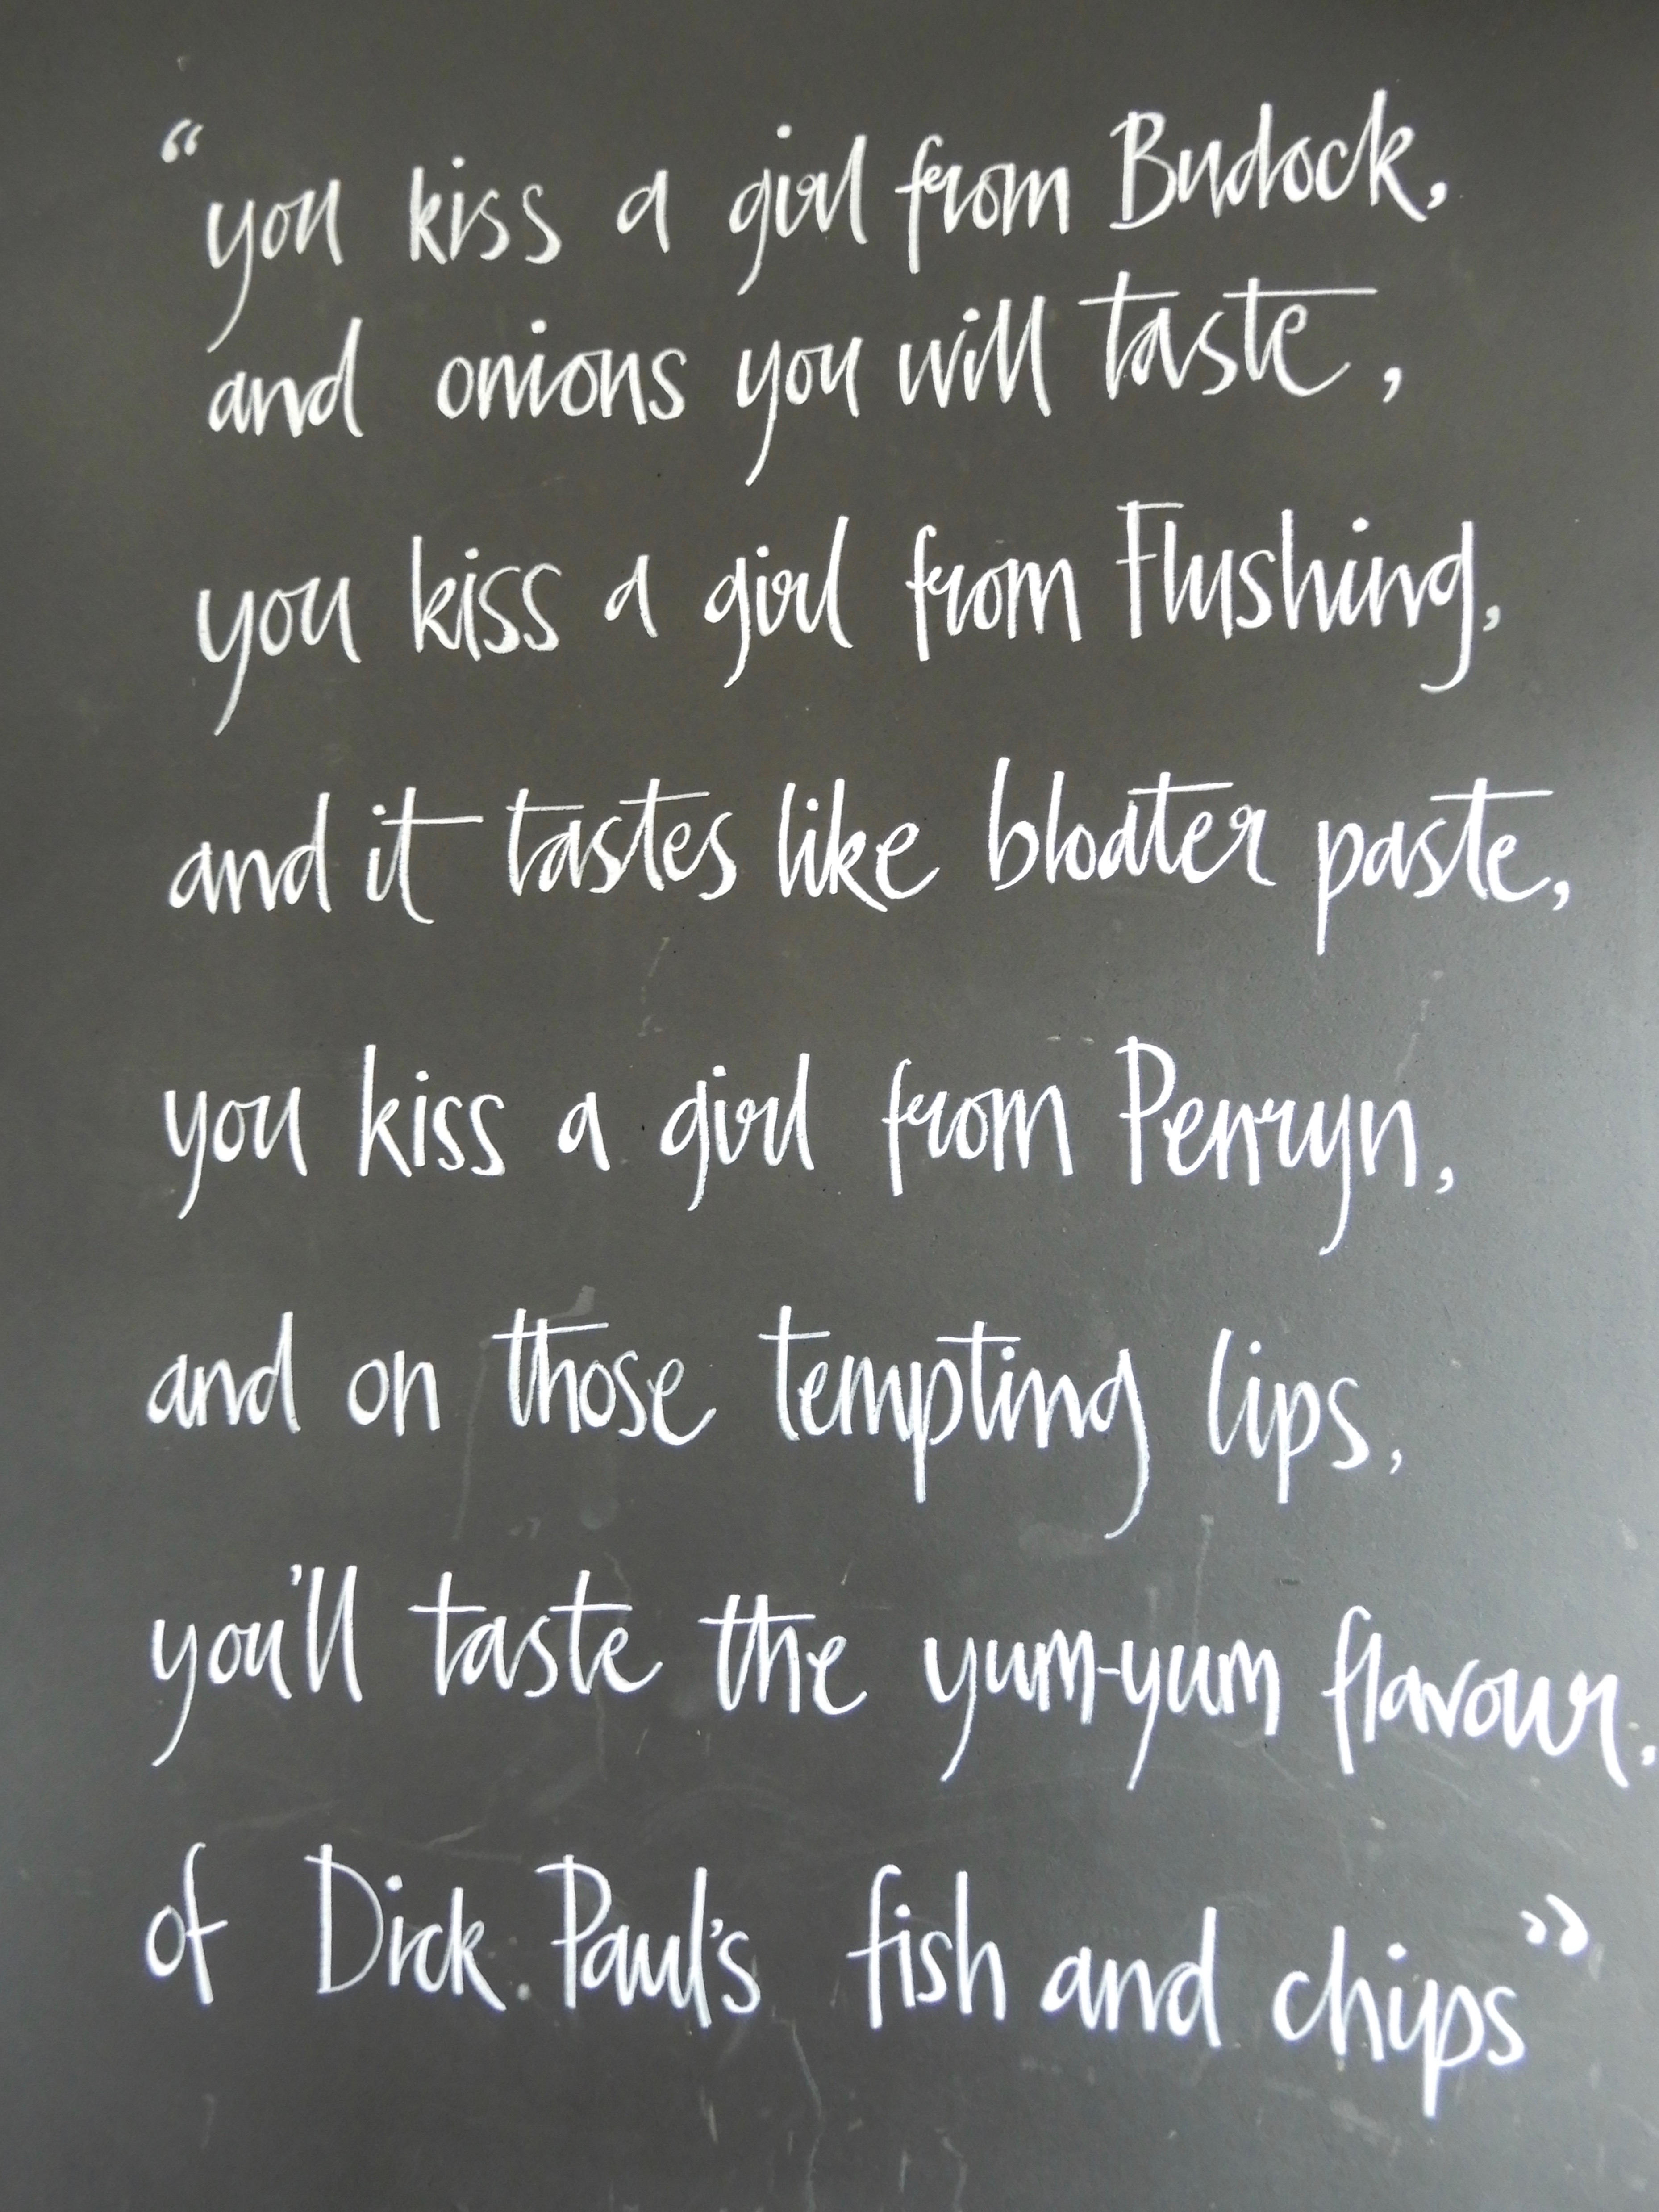 “you kiss a girl from Budock,
and onions you will taste,
you kiss a girl from Flushing,
and it tastes like bloater paste,
you kiss a girl from Penryn,
and on those tempting lips,
you'll taste the yum-yum flavour.
of Dick. Paul's fish and chips”